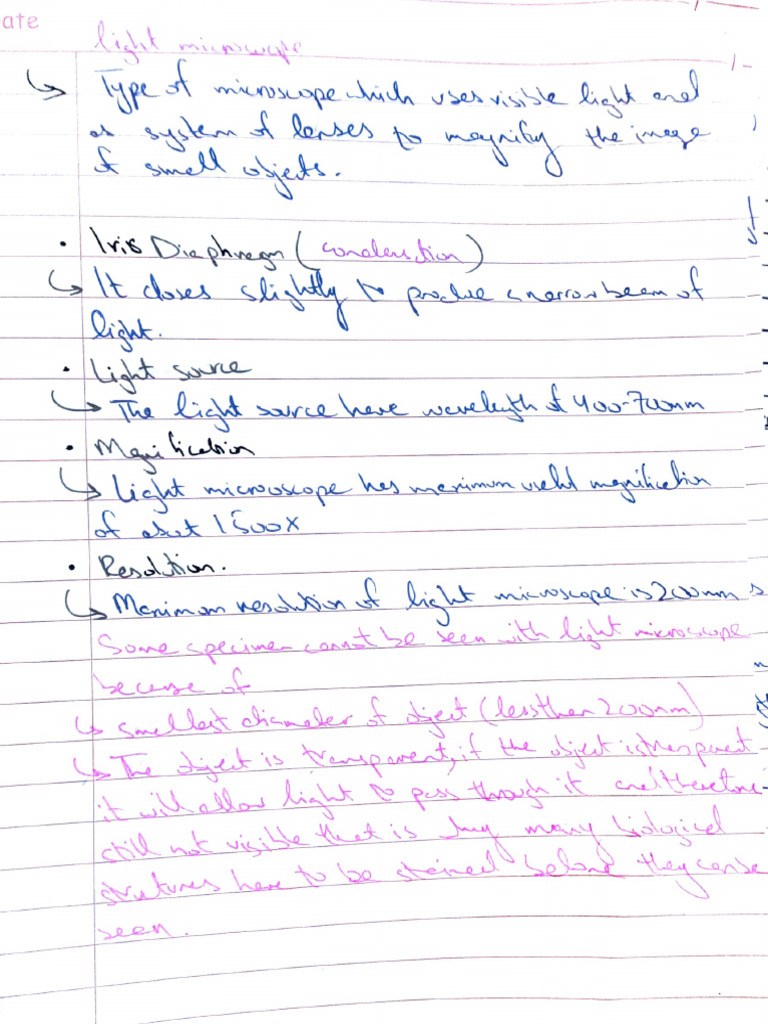 ate
light microscope
Type of microscope which uses visible light and
as system of lenses to magnify the image
of small objects.
• Iris Diaphragm (
It closes slightly to produce a narrow beam of
light.
• Light source
The light source have wavelength of 400-700nm
• Magnification
Light microoscope has maximum useful magnification
of about 1500X
• Resolution.
Maximum resolution of light microscope is 200nm s
Some specimen cannot be seen with light microscope
because of
smallest diameter of object (less than 200nm)
The object is transparent, if the object is transparent
it will allow light to pass through it and therefore
still not visible that is why many biological
structures have to be stained before they can be
seen.